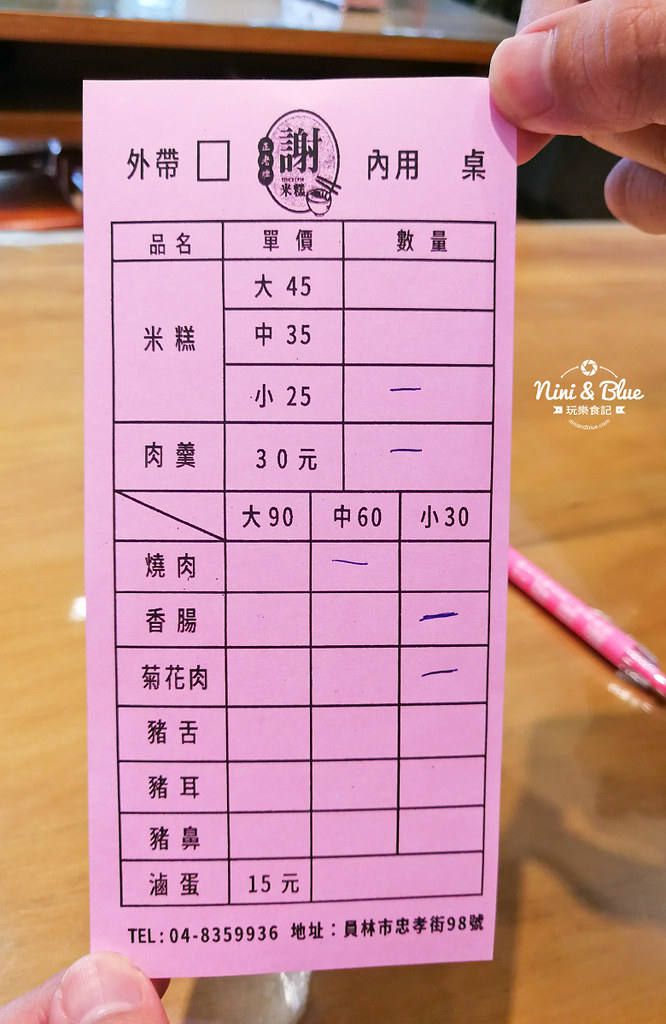 外帶
謝
米糕
內用 桌
品名 單價 數量
米糕 大 45
中 35
小 25 一
肉羹 30元 一
大90 中60 小30
燒肉 一
香腸 一
菊花肉 一
豬舌
豬耳
豬鼻
滷蛋 15元
TEL: 04-8359936 地址：員林市忠孝街98號
Nini & Blue
玩樂食記
niniandblue.com